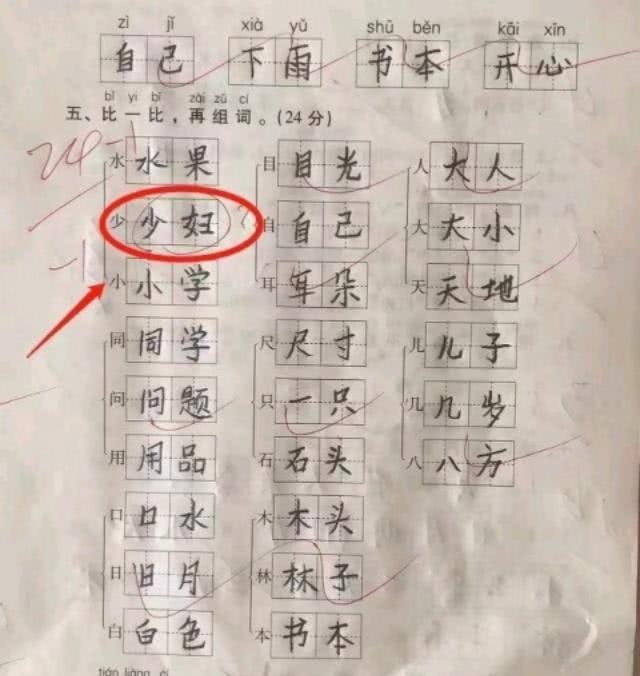 zì jǐ xià yǔ shū běn kāi xīn
自己 下雨 书本 开心
bǐ yi bǐ zài zǔ cí
五、比一比，再组词。(24分)
24-1
水 水果 目 目光 人 大人
少 少妇 自 自己 大 大小
-1
小 小学 耳 耳朵 天 天地
同 同学 尺 尺寸 儿 儿子
问 问题 只 一只 几 几岁
用 用品 石 石头 八 八方
口 口水 木 木头
日 日月 林 林子
白 白色 本 书本
tián liàng cí